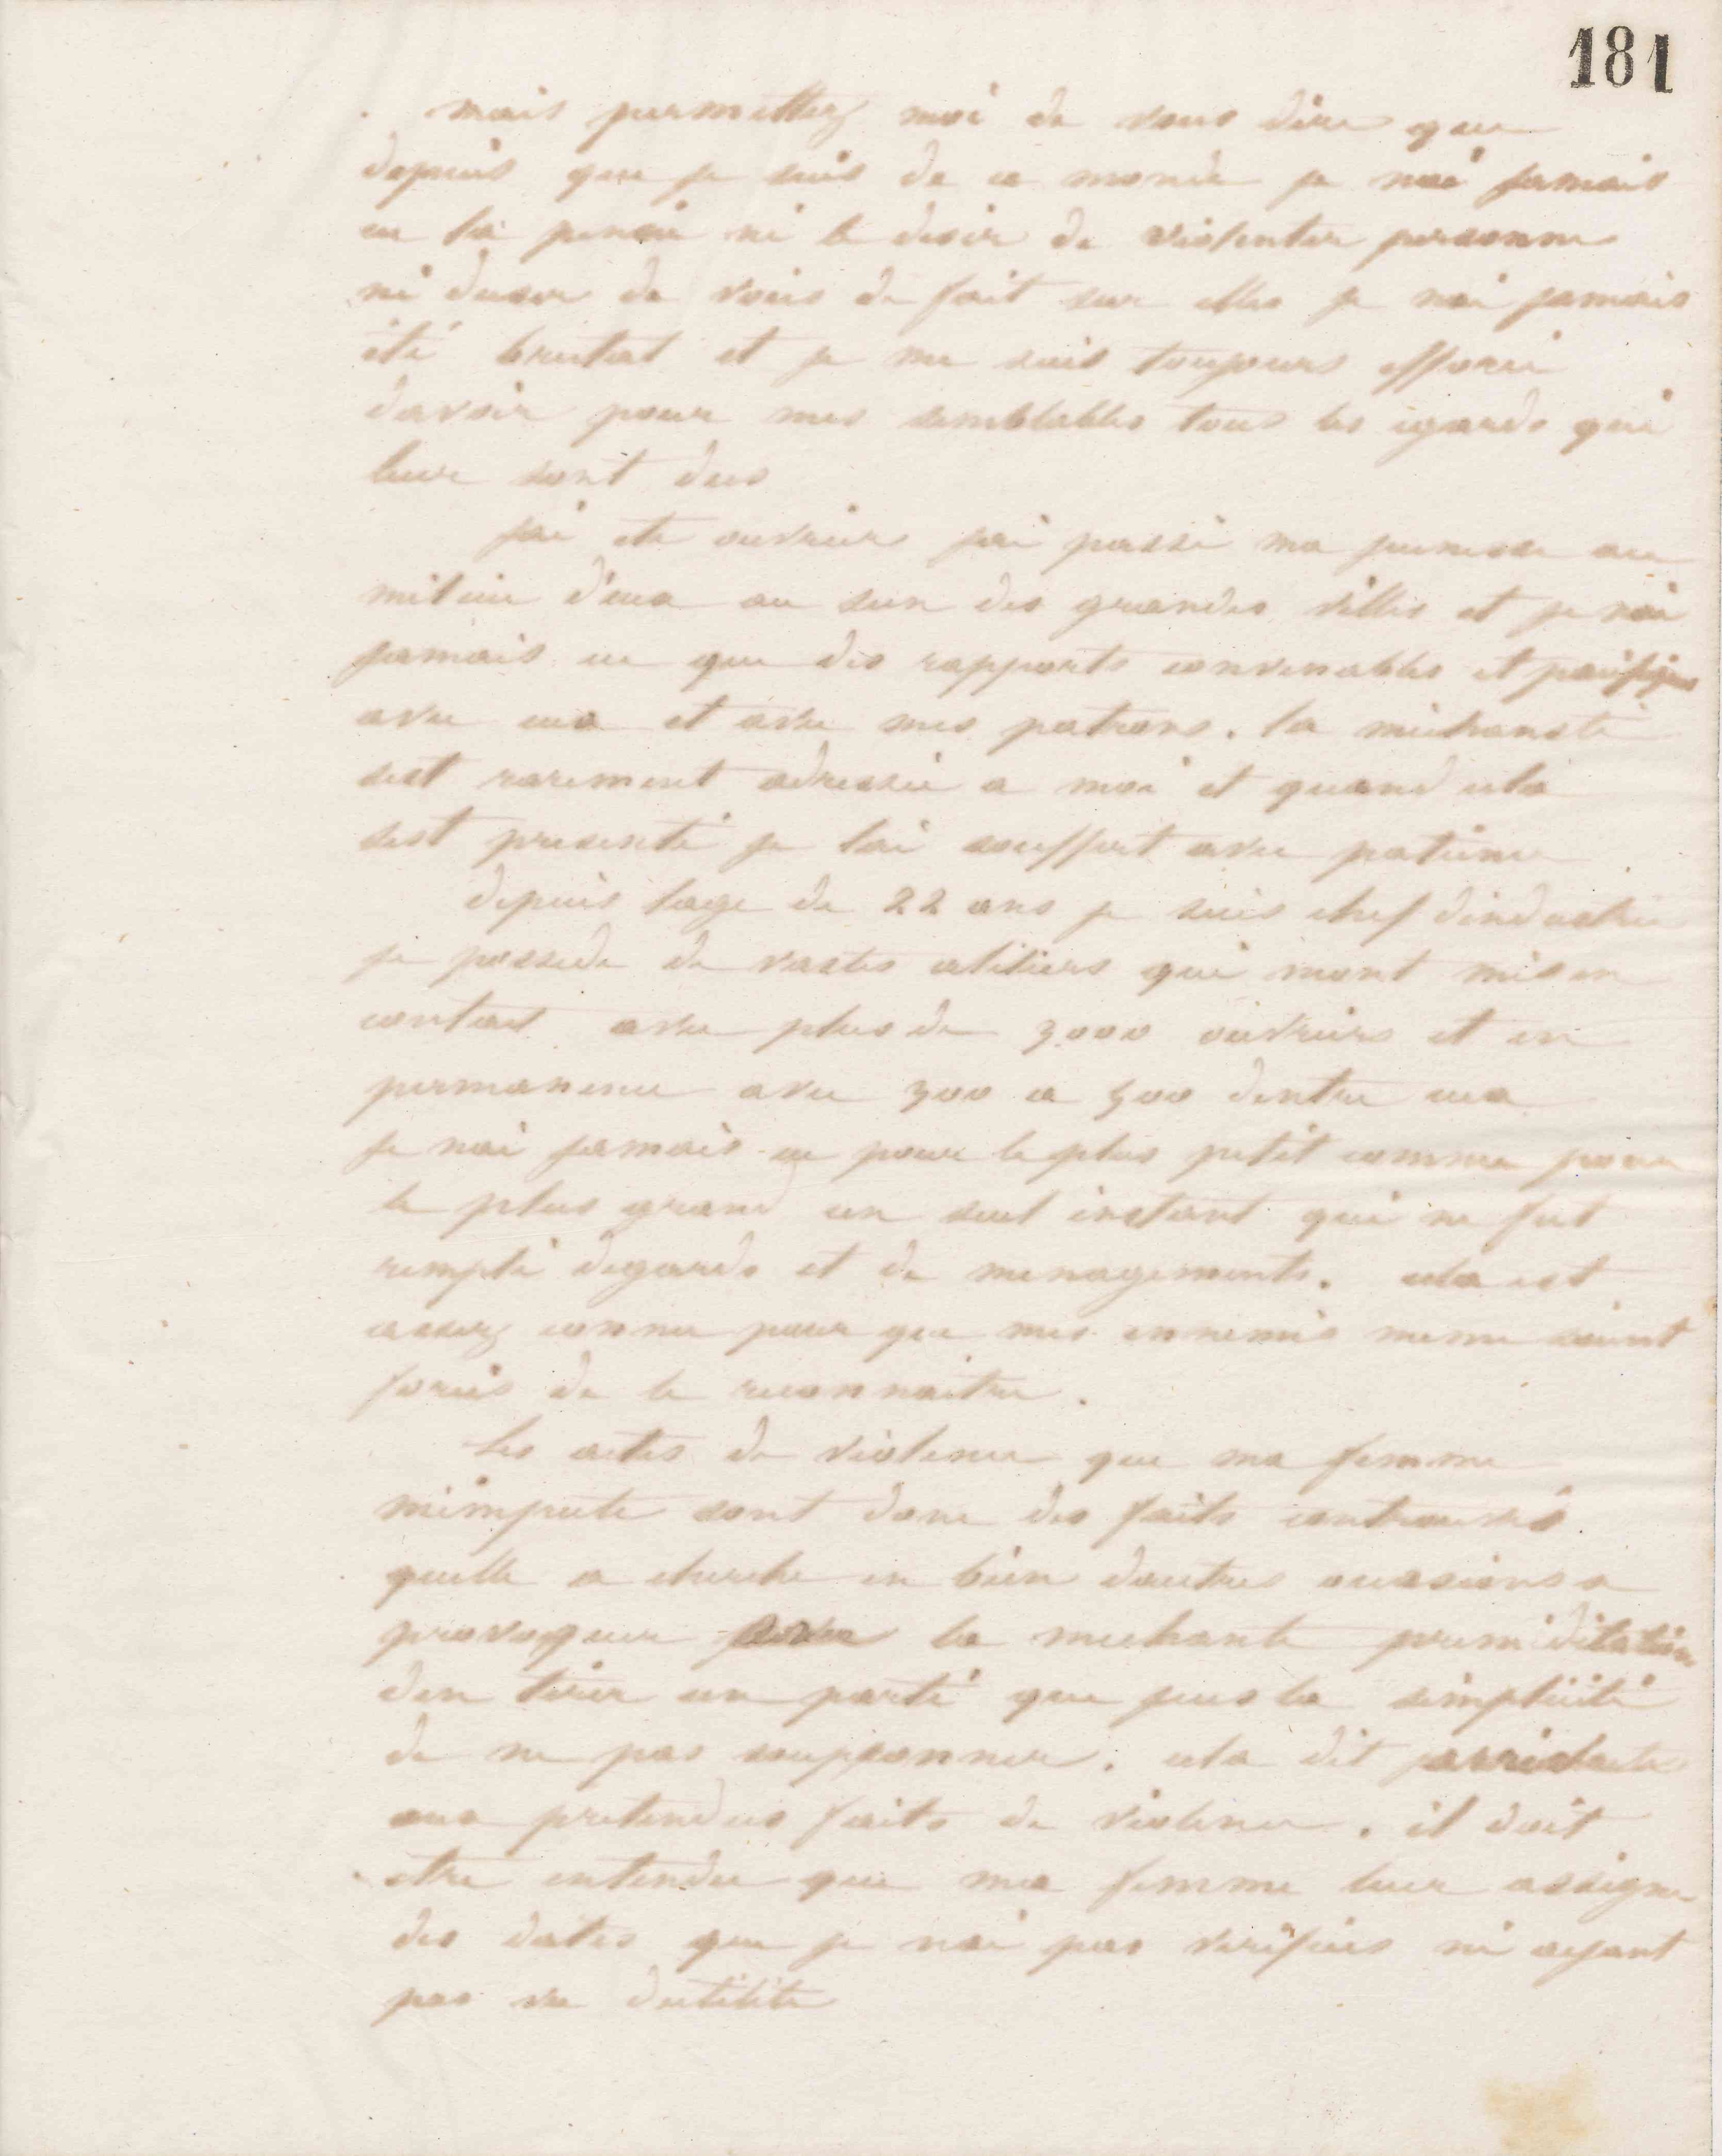 181
mais permettez moi de vous dire que
depuis que je suis de ce monde je nai jamais
eu la pensée ni le desir de violenter personne
ni duser de voies de fait sur elles je nai jamais
été brutal et je me suis toujours efforcé
davoir pour mes semblables tous les egards qui
leur sont dus
jai ete ouvriers jai passé ma jeunesse au
milieu d'eux au sein des grandes villes et je nai
jamais eu que des rapports convenables et pacifiques
avec eux et avec mes patrons. la méchanseté
sest rarement adressée a moi et quand cela
sest presenté je lai souffert avec patience
depuis lage de 22 ans je suis chef dindustrie
je possede de vastes atéliers qui mont mis en
contact avec plus de 3000 ouvriers et en
permanence avec 300 a 500 dentre eux
je nai jamais eu pour le plus petit comme pour
le plus grand un seul instant qui ne fut
rempli degards et de menagements. cela est
assez connu pour que mes ennemis meme soient
forcés de le reconnaitre.
les actes de violence que ma femme
mimpute sont donc des faits controuvés
quelle a cherché en bien dautres occasions a
provoquer avec la mechante preméditation
den tirer un parti que jeus la simplicité
de ne pas soupçonner. cela dit jarrive
aux pretendus faits de violence. il doit
etre entendu que ma femme leur assigne
des dates que je nai pas verifiées ni ayant
pas vu dutilité